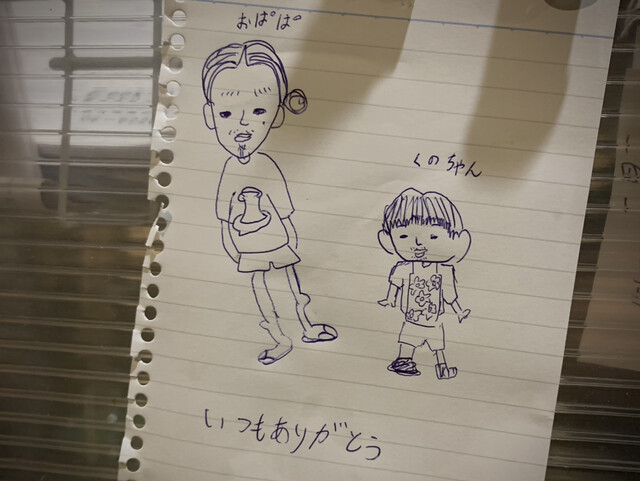 おぱぱ
くのちゃん
いつもありがとう